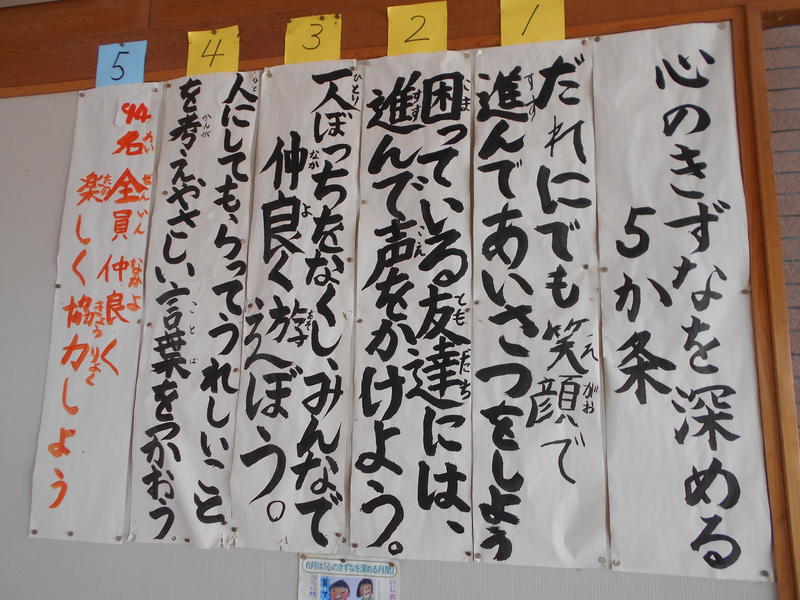 心のきずなを深める
5か条
1
だれにでも笑顔で
進んであいさつをしよう
2
困っている友達には、
進んで声をかけよう。
3
一人ぼっちをなくし、みんなで
仲良く遊ぼう。
4
人にしてもらってうれしいこと
を考え、やさしい言葉をつかおう。
5
94名全員仲良く
楽しく協力しよう
6月は「心のきずなを深める月間」
いじめ